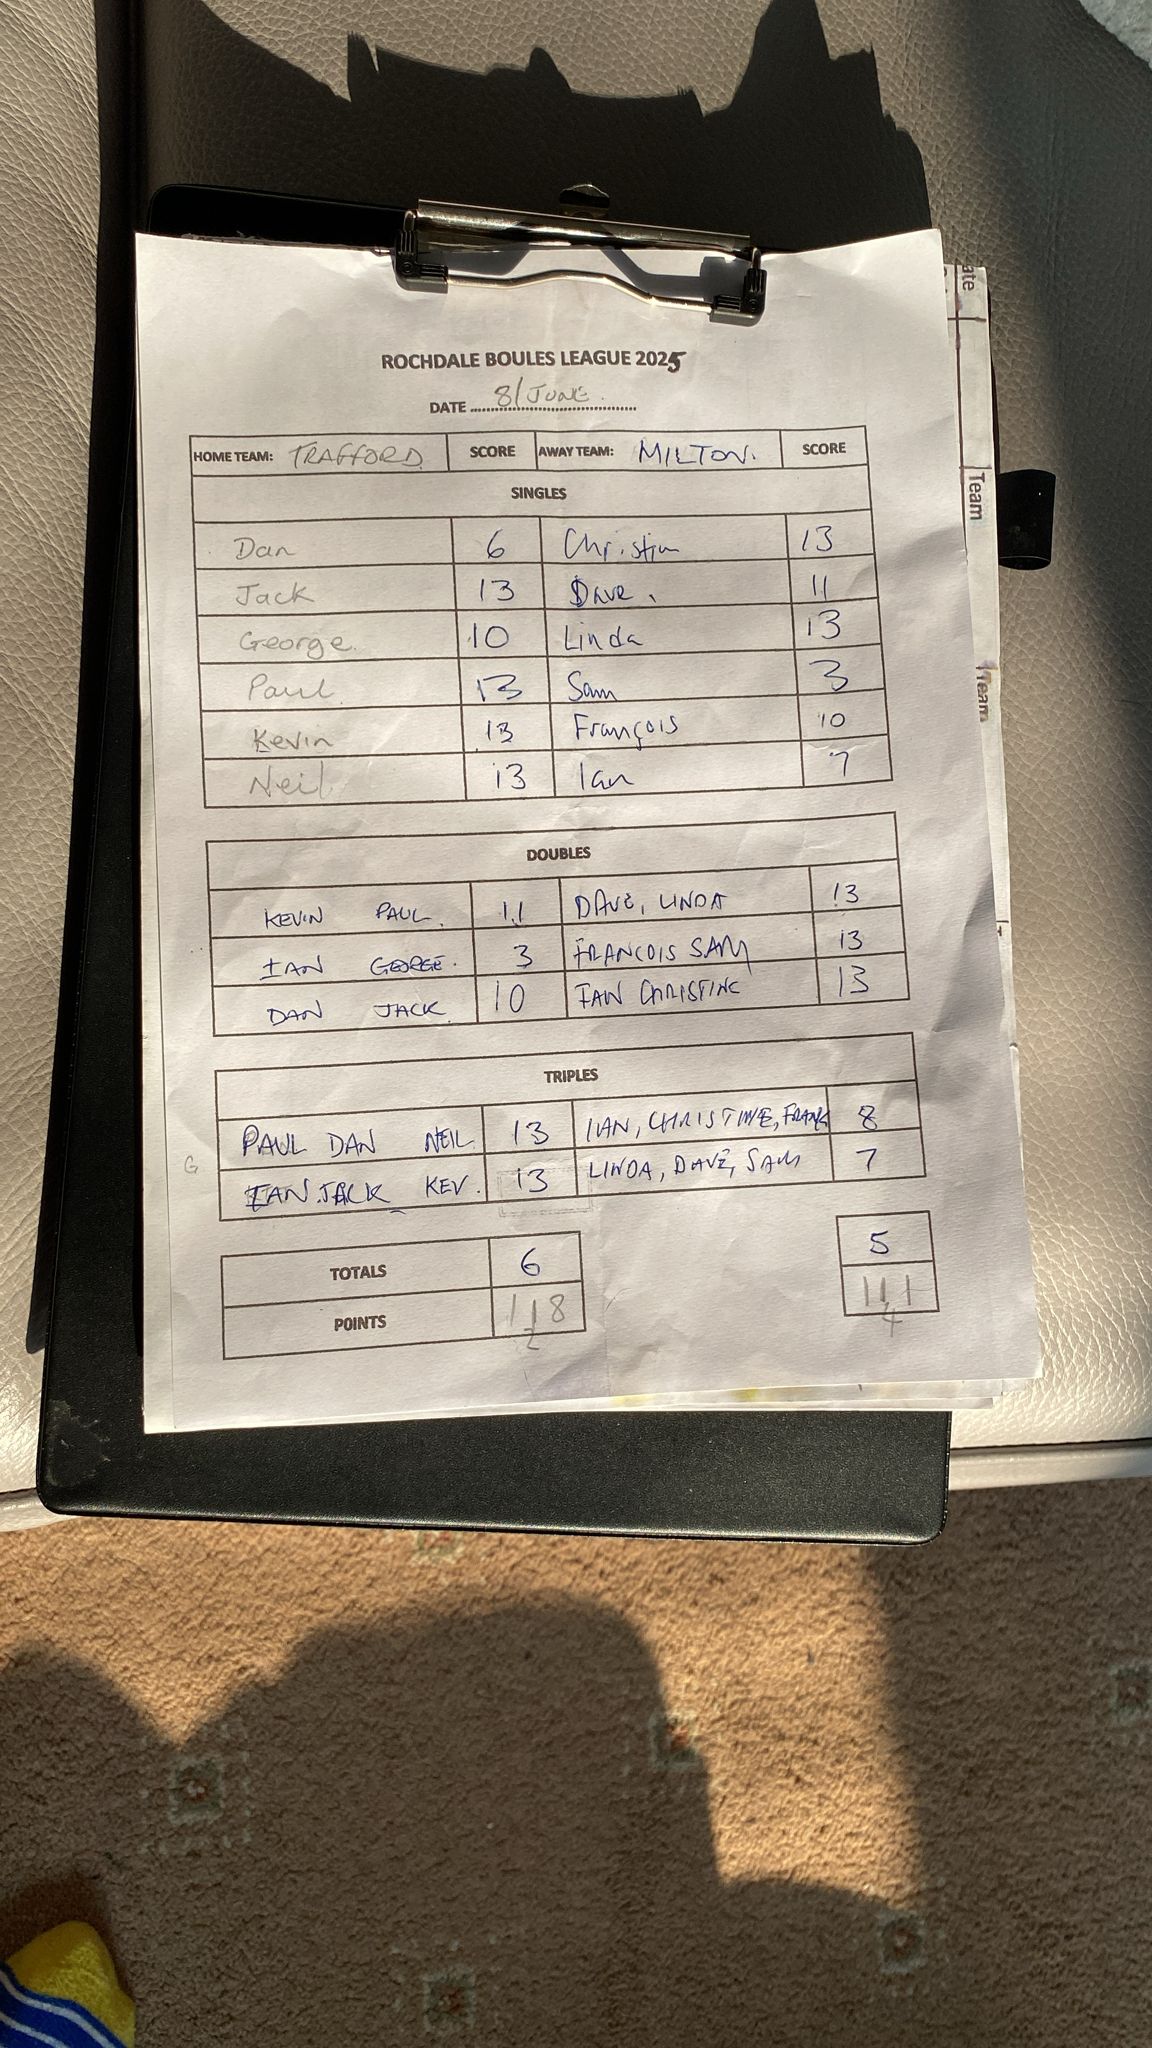 ate
ROCHDALE BOULES LEAGUE 2025
DATE 8/JUNE.
HOME TEAM: TRAFFORD SCORE AWAY TEAM: MILTON. SCORE
SINGLES
Dan 6 13
Jack 13 Dave. 11
George. 10 Linda 13
Paul 13 Sam 3
Kevin 13 François 10
Neil 13 Ian 7
DOUBLES
KEVIN PAUL. 11 DAVE, LINDA 13
IAN GEORGE. 3 FRANCOIS SAM 13
DAN JACK. 10 IAN CHRISTINE 13
TRIPLES
PAUL DAN NEIL. 13 IAN, CHRISTINE, FRANK 8
G IAN. JACK KEV. 13 LINDA, DAVE, SAM 7
TOTALS 6 5
POINTS 118 111
2 4
Team
Team